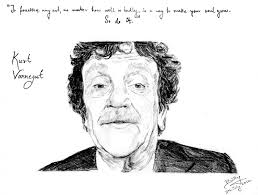 "To practice any art, no matter how well or badly, is a way to make your soul grow.
So do it."
Kurt
Vonnegut